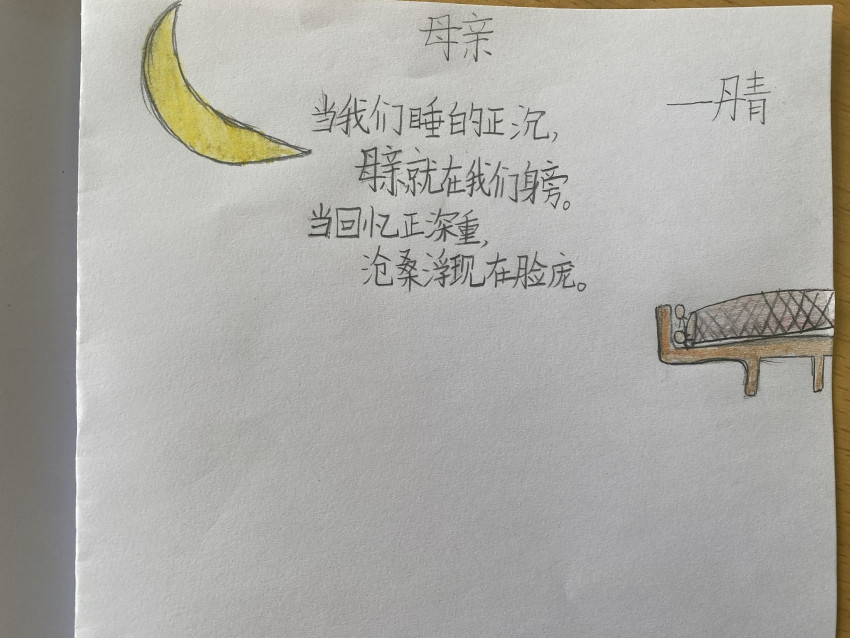 母亲
——丹青
当我们睡的正沉,
母亲就在我们身旁。
当回忆正深重,
沧桑浮现在脸庞。